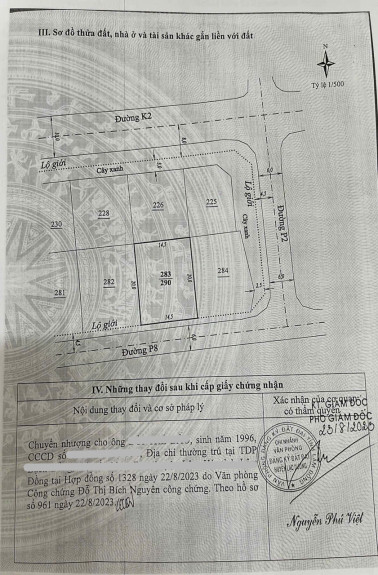 III. Sơ đồ thửa đất, nhà ở và tài sản khác gắn liền với đất
N
Tỷ lệ 1/500
Đường K2
Lộ giới
Cây xanh
Lộ giới
Cây xanh
Đường P2
230
228
226
225
14,5
281
282
20,0
283
290
20,0
284
14,5
2,5
Lộ giới
Đường P8
IV. Những thay đổi sau khi cấp giấy chứng nhận
Nội dung thay đổi và cơ sở pháp lý
Xác nhận của cơ quan
có thẩm quyền
KT. GIÁM ĐỐC
PHÓ GIÁM ĐỐC
23/8/2023
Chuyển nhượng cho ông , sinh năm 1996,
CCCD số Địa chỉ thường trú tại TDP
Đồng tại Hợp đồng số 1328 ngày 22/8/2023 do Văn phòng
Công chứng Đỗ Thị Bích Nguyên công chứng. Theo hồ sơ
số 961 ngày 22/8/2023
CHI NHÁNH
VĂN PHÒNG
ĐĂNG KÝ ĐẤT ĐAI
Nguyễn Phú Việt